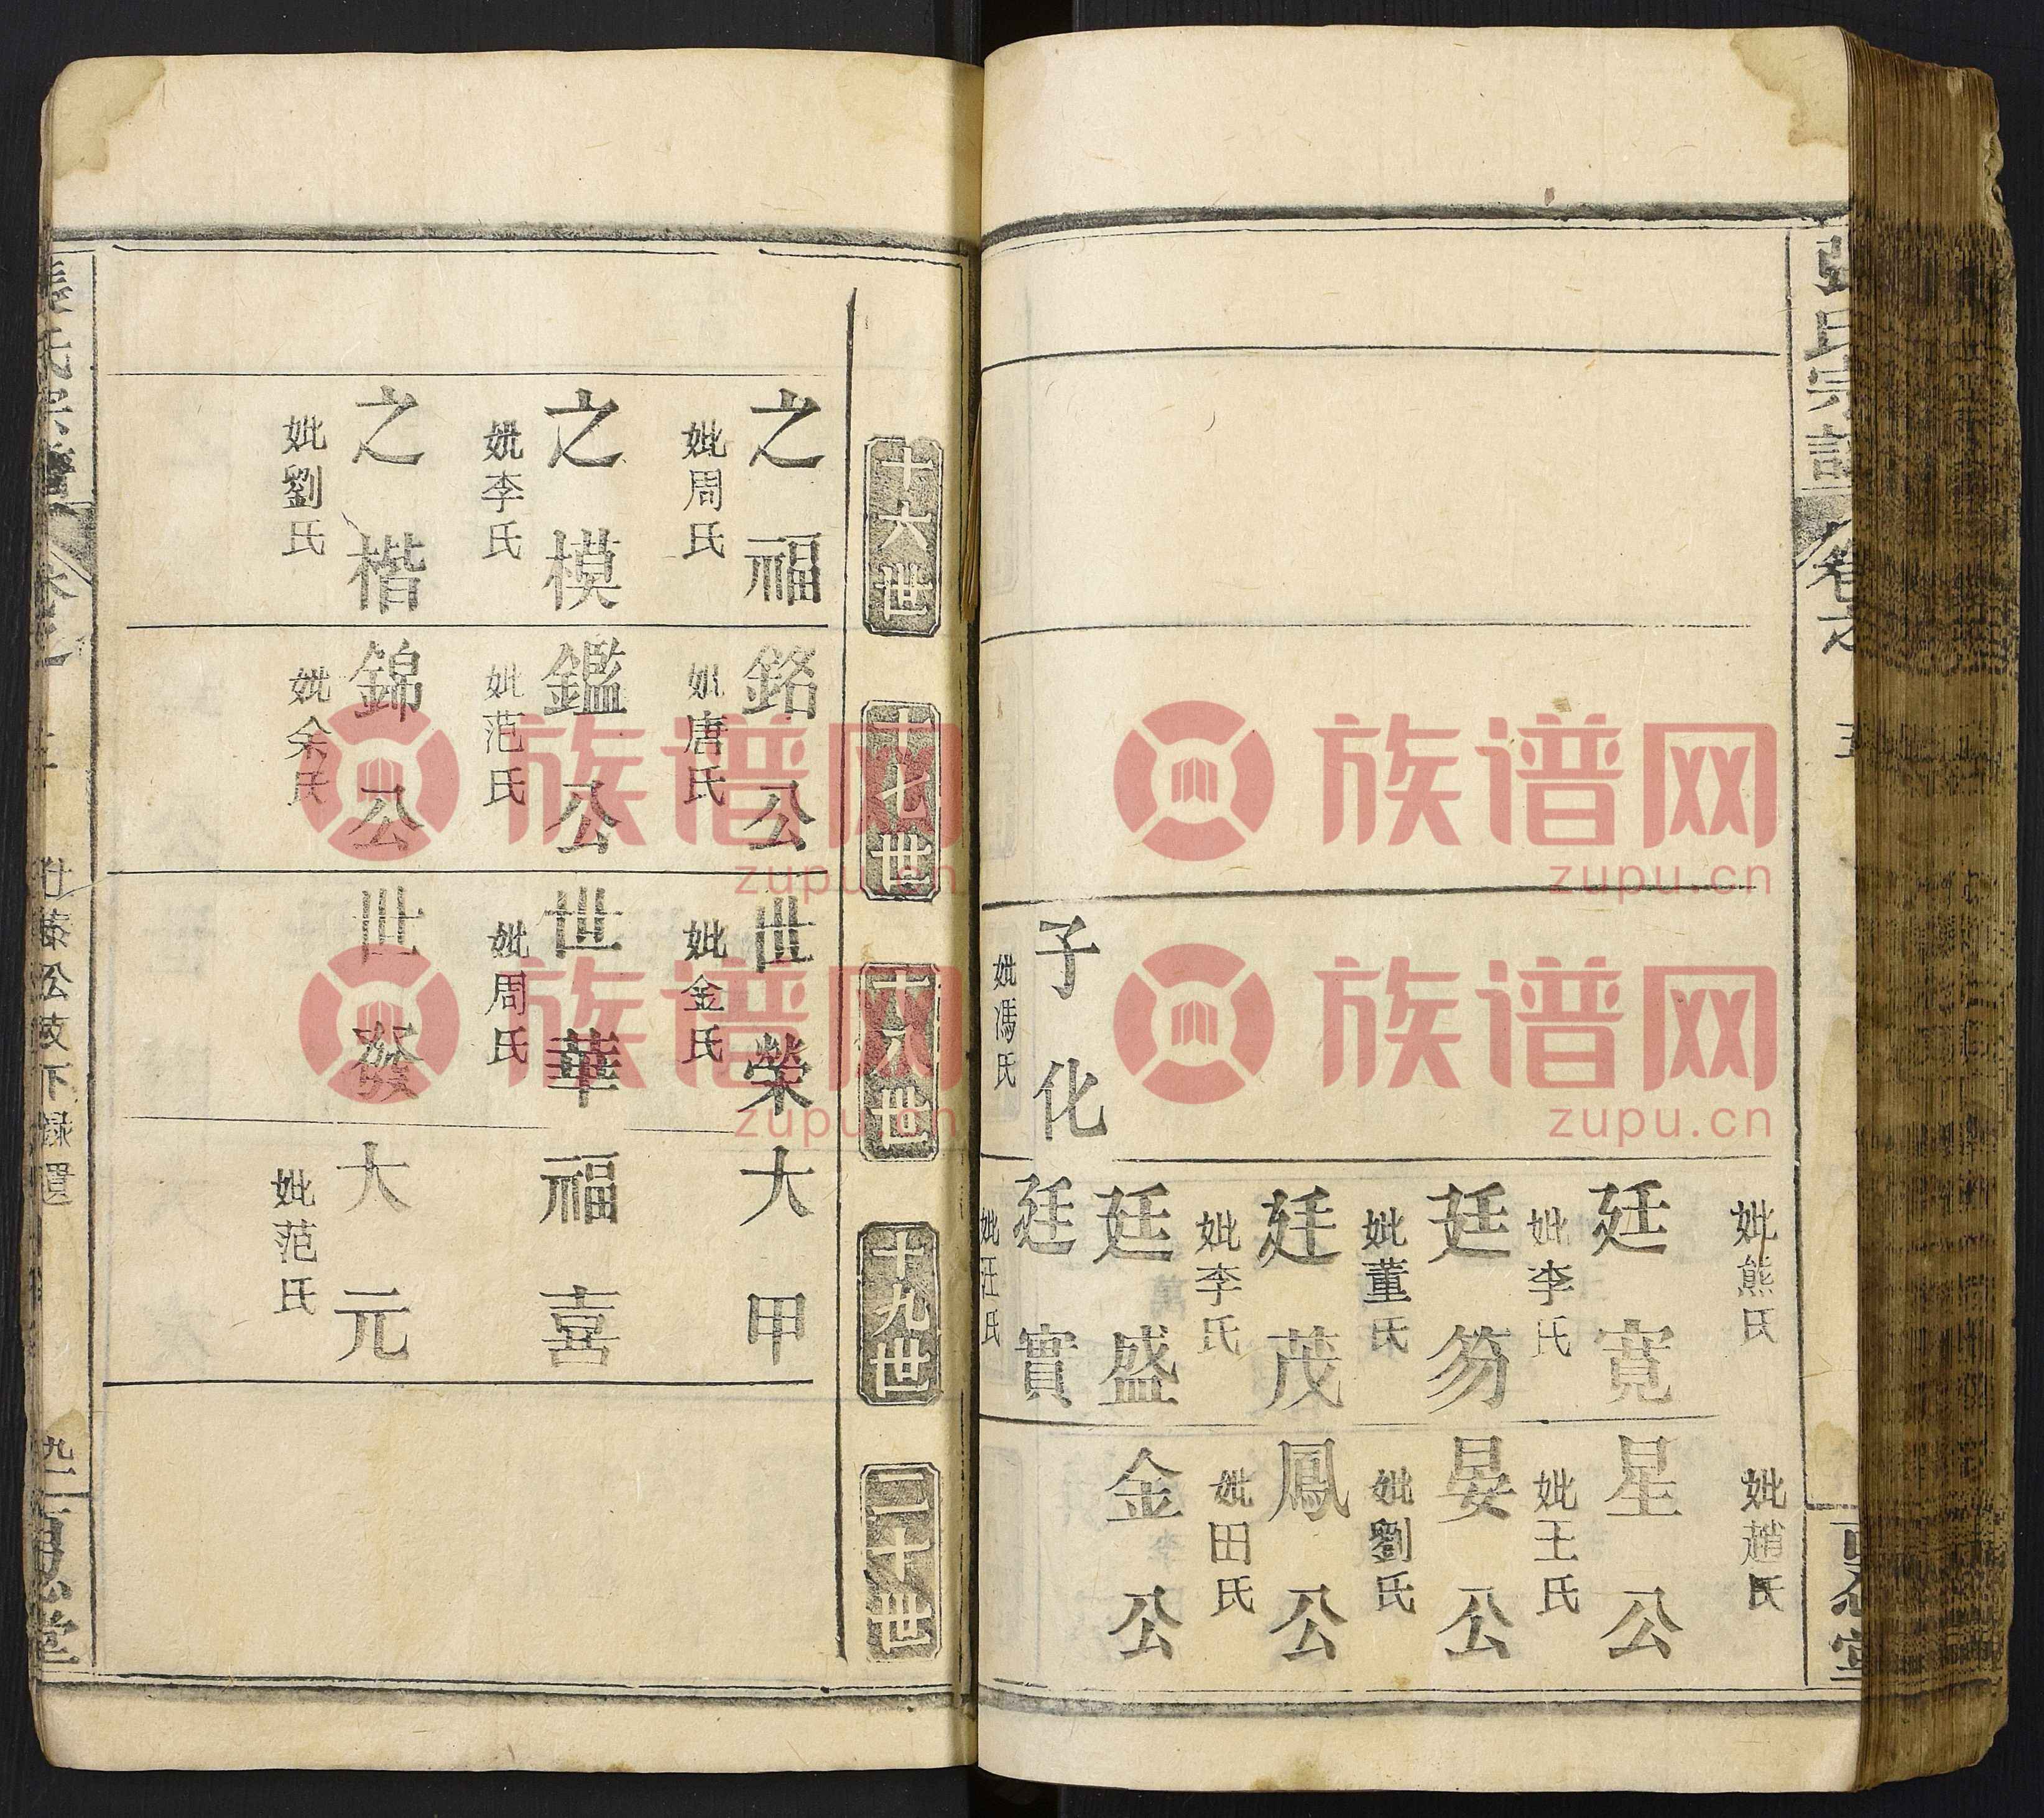 張氏宗譜
卷之
五
妣熊氏
妣趙氏
廷寬
妣李氏
星公
妣王氏
廷笏
妣董氏
晏公
妣劉氏
廷茂
妣李氏
鳳公
妣田氏
廷盛
金公
子化
妣馮氏
廷實
妣汪氏
十六世
十七世
十八世
十九世
二十世
之福
妣周氏
銘公
妣唐氏
世榮
妣金氏
大甲
之模
妣李氏
鑑公
妣范氏
世華
妣周氏
福喜
之楷
妣劉氏
錦公
妣余氏
世發
大元
妣范氏
張氏宗譜
公枝下録遺
忍堂
族谱网
zupu.cn
族谱网
zupu.cn
族谱网
zupu.cn
族谱网
zupu.cn